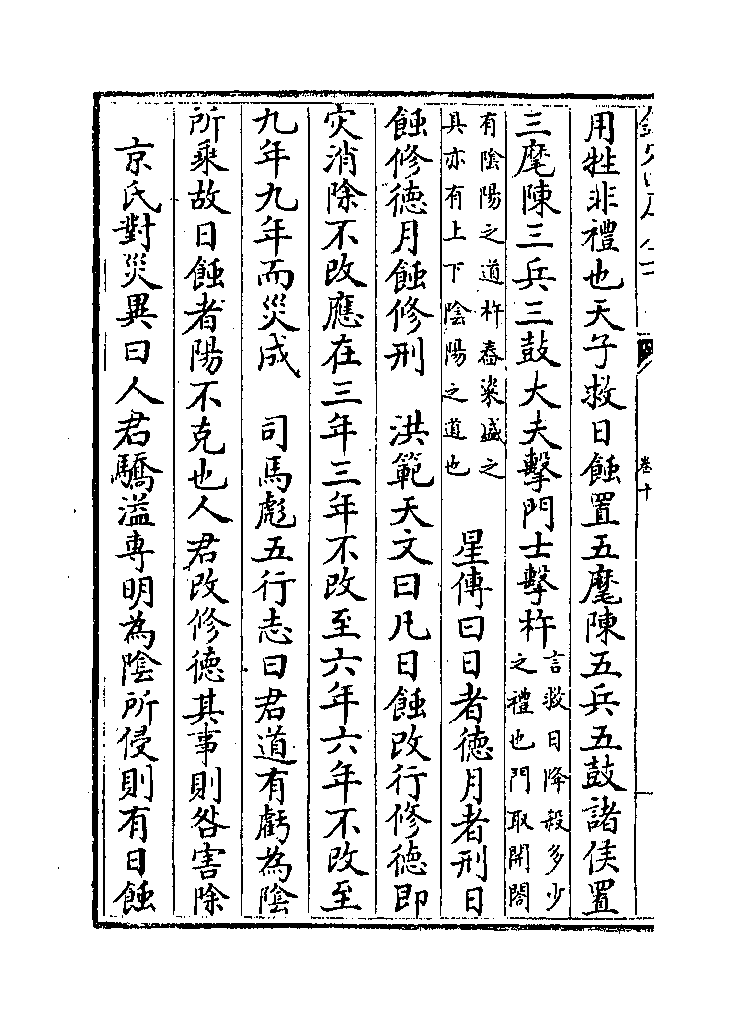 卷十
用牲非禮也天子救日蝕置五麾陳五兵五鼓諸侯置
三麾陳三兵三鼓大夫擊門士擊杵
言救日降殺多少
之禮也門取開闔
有陰陽之道杵舂粢盛之
具亦有上下陰陽之道也
星傳曰日者徳月者刑日
蝕修徳月蝕修刑　洪範天文曰凡日蝕改行修徳即
灾消除不改應在三年三年不改至六年六年不改至
九年九年而災成　司馬彪五行志曰君道有虧為陰
所乘故日蝕者陽不克也人君改修徳其事則咎害除
京氏對災異曰人君驕溢專明為陰所侵則有日蝕